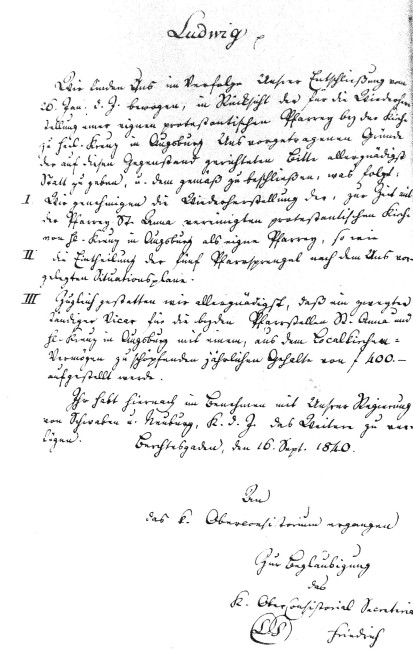 Ludwig
Wir finden Uns im Verfolge Unsrer Entschließung vom
26. Jan. d. J. bewogen, in Rücksicht der für die Wiederher-
stellung einer eignen protestantischen Pfarrey bey der Kirche
zu Heil. Kreuz in Augsburg Uns vorgetragenen Gründe
der auf diesen Gegenstand gerichteten Bitte allergnädigst
Statt zu geben, u. dem gemäß zu beschließen, was folgt:
I Wir genehmigen die Wiederherstellung der, zur Zeit mit
der Pfarrey St. Anna vereinigten protestantischen Kirche
von Hl. Kreuz in Augsburg als eigne Pfarrey, so wie
II die Eintheilung der fünf Pfarrsprengel nach dem Uns vor-
gelegten Situationsplane.
III Zugleich gestatten wir allergnädigst, daß ein
ständiger Vicar für die beyden Pfarrstellen St. Anna und
Hl. Kreuz in Augsburg mit einem, aus dem Localkirchen-
Vermögen zu schöpfenden jährlichen Gehalte von f 400.–
aufgestellt werde.
Ihr habt hiernach im Benehmen mit Unsrer Regierung
von Schwaben u. Neuburg, K. d. J. das Weitere zu ver-
fügen. Berchtesgaden, den 16. Sept. 1840.
An
das k. Oberconsistorium ergangen
Zur Beglaubigung
das
K. Oberconsistorial Secretaria
(LS) Friedrich